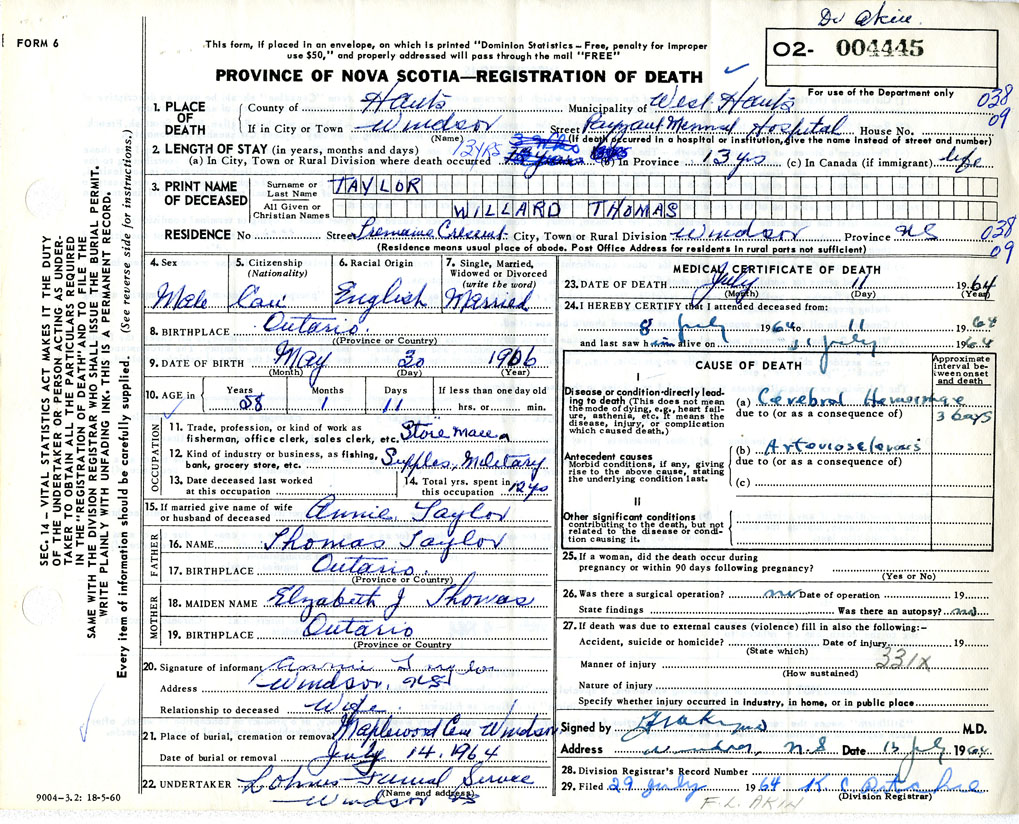 Dr Akin.
FORM 6
This form, if placed in an envelope, on which is printed "Dominion Statistics – Free, penalty for improper
use $50," and properly addressed will pass through the mail "FREE"
O2- 004445
For use of the Department only
PROVINCE OF NOVA SCOTIA—REGISTRATION OF DEATH
038
09
1. PLACE OF DEATH
County of Hants Municipality of West Hants
If in City or Town Windsor Street Payzant Memorial Hospital House No.
(Name) (If death occurred in a hospital or institution, give the name instead of street and number)
2. LENGTH OF STAY (in years, months and days)
(a) In City, Town or Rural Division where death occurred 13 yrs (b) In Province 13 yrs (c) In Canada (if immigrant) life
3. PRINT NAME OF DECEASED
Surname or Last Name TAYLOR
All Given or Christian Names WILLARD THOMAS
RESIDENCE No Street Tremaine Crescent City, Town or Rural Division Windsor Province NS
038
09
(Residence means usual place of abode. Post Office Address for residents in rural parts not sufficient)
4. Sex Male
5. Citizenship (Nationality) Can
6. Racial Origin English
7. Single, Married, Widowed or Divorced (write the word) Married
8. BIRTHPLACE Ontario.
(Province or Country)
9. DATE OF BIRTH May 30 1906
(Month) (Day) (Year)
10. AGE in Years 58 Months 1 Days 11 If less than one day old hrs. or min.
OCCUPATION
11. Trade, profession, or kind of work as
fisherman, office clerk, sales clerk, etc. Store man
12. Kind of industry or business, as fishing,
bank, grocery store, etc. Supplies, Military
13. Date deceased last worked
at this occupation
14. Total yrs. spent in
this occupation 12 yrs
15. If married give name of wife
or husband of deceased Annie Taylor
FATHER
16. NAME Thomas Taylor
17. BIRTHPLACE Ontario.
(Province or Country)
MOTHER
18. MAIDEN NAME Elizabeth J Thomas
19. BIRTHPLACE Ontario
(Province or Country)
20. Signature of informant Annie Taylor
Address Windsor, NS
Relationship to deceased Wife.
21. Place of burial, cremation or removal Maplewood Cem Windsor
Date of burial or removal July 14, 1964
22. UNDERTAKER Lohnes Funeral Service
(Name and address)
Windsor NS
MEDICAL CERTIFICATE OF DEATH
23. DATE OF DEATH July 11 1964
(Month) (Day) (Year)
24. I HEREBY CERTIFY that I attended deceased from:
8 July 1964 to 11 1964
and last saw him alive on 11 July 1964
CAUSE OF DEATH
Approximate interval between onset and death
I
Disease or condition directly leading to death (This does not mean the mode of dying, e.g., heart failure, asthenia, etc. It means the disease, injury, or complication which caused death.)
(a) Cerebral Hemorrhage
3 days
due to (or as a consequence of)
Antecedent causes
Morbid conditions, if any, giving rise to the above cause, stating the underlying condition last.
(b) Arteriosclerosis
due to (or as a consequence of)
(c)
II
Other significant conditions
contributing to the death, but not related to the disease or condition causing it.
25. If a woman, did the death occur during
pregnancy or within 90 days following pregnancy?
(Yes or No)
26. Was there a surgical operation? no Date of operation 19
State findings Was there an autopsy? no
27. If death was due to external causes (violence) fill in also the following:-
Accident, suicide or homicide? Date of injury 19
(State which)
331X
Manner of injury
(How sustained)
Nature of injury
Specify whether injury occurred in industry, in home, or in public place
Signed by M.D.
Address Windsor, N.S Date 13 July 1964
28. Division Registrar's Record Number
29. Filed 29 July 1964
(Division Registrar)
F.L. AKIN
SEC. 14 – VITAL STATISTICS ACT MAKES IT THE DUTY
OF THE UNDERTAKER OR PERSON ACTING AS UNDER-
TAKER TO OBTAIN ALL THE PARTICULARS REQUIRED
IN THE "REGISTRATION OF DEATH" AND TO FILE THE
SAME WITH THE DIVISION REGISTRAR WHO SHALL ISSUE THE BURIAL PERMIT.
WRITE PLAINLY WITH UNFADING INK. THIS IS A PERMANENT RECORD.
Every item of information should be carefully supplied. (See reverse side for instructions.)
9004-3.2: 18-5-60